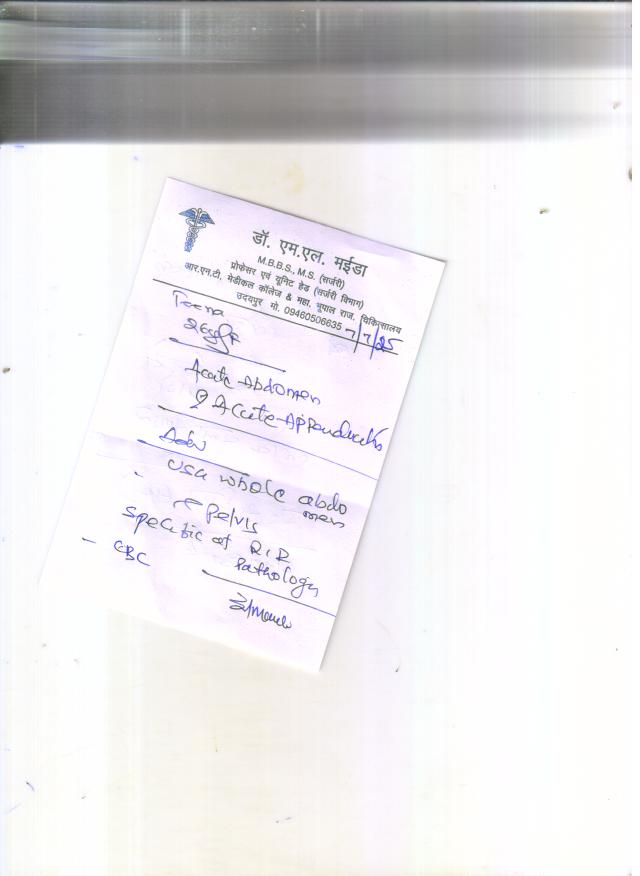 डॉ. एम.एल. मईडा
M.B.B.S., M.S. (सर्जरी)
प्रोफेसर एवं यूनिट हेड (सर्जरी विभाग)
आर.एन.टी. मेडीकल कॉलेज & महा. भूपाल राज. चिकित्सालय
उदयपुर मो. 09460506635
7/7/25
Teena
Acute Abdomen
Acute Appendicitis
Adv
- USG whole abdo
men
& pelvis
Specific of R.I.F
Pathology
- CBC